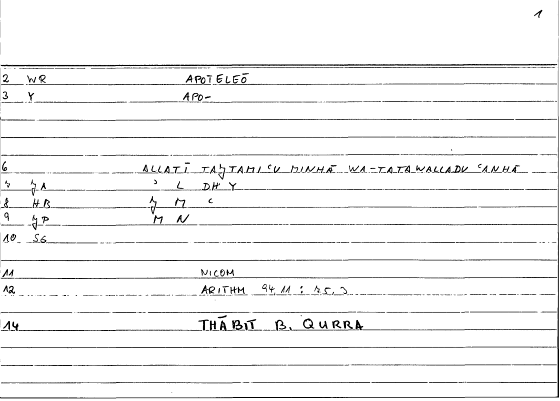 1
2 WR APOTELEŌ
3 Y APO-
6 ALLATĪ TAJTAMIʿU MINHĀ WA-TATAWALLADU ʿANHĀ
7 JA ʾ L DH Y
8 HB J M ʿ
9 JP M N
10 SG
11 NICOM
12 ARITHM 94.11 : 75.3
14 THĀBIT B. QURRA